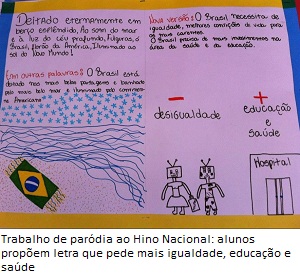 Deitado eternamente em
berço esplêndido, Ao som do mar
e à luz do céu profundo, Fulguras, ó
Brasil, florão da América, Iluminado ao
sol do Novo Mundo!
Em outras palavras: O Brasil está
deitado nas mais belas paisagens e banhado
pelo mais belo mar e iluminado pelo continente
Americano
Nova versão: O Brasil necessita de
igualdade, melhores condições de vida para
os mais carentes.
O Brasil precisa de mais investimentos na
área da saúde e da educação.
desigualdade
educação
e
saúde
Hospital
Trabalho de paródia ao Hino Nacional: alunos
propõem letra que pede mais igualdade, educação e
saúde